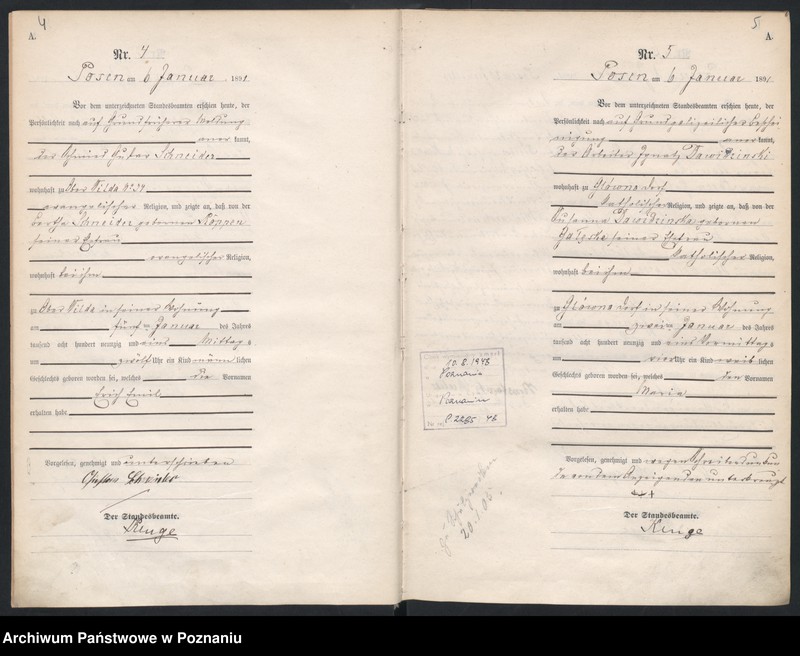 4
A.
Nr. 4
Posen am 6 Januar 1891
Vor dem unterzeichneten Standesbeamten erschien heute, der
Persönlichkeit nach auf Grund früherer Meldung
aner kannt,
der Schmied Gustav Schneider
wohnhaft zu Ober Wilda No 34
evangelischer Religion, und zeigte an, daß von der
Bertha Schneider geborenen Köppen
seiner Ehefrau
evangelischer Religion,
wohnhaft bei ihm
zu Ober Wilda in seiner Wohnung
am fünften Januar des Jahres
tausend acht hundert neunzig und eins Mittags
um zwölf Uhr ein Kind männ lichen
Geschlechts geboren worden sei, welches die Vornamen
Erich Emil
erhalten habe
Vorgelesen, genehmigt und unterschrieben
Gustav Schneider
Der Standesbeamte.
Kinge
5
A.
Nr. 5
Posen am 6 Januar 1891
Vor dem unterzeichneten Standesbeamten erschien heute, der
Persönlichkeit nach auf Grund polizeilicher Beschei
nigung aner kannt,
der Arbeiter Ignatz Dawidzinski
wohnhaft zu Glowno Dorf
katholischer Religion, und zeigte an, daß von der
Susanna Dawidzinska geborenen
seiner Ehefrau
katholischer Religion,
wohnhaft bei ihm
zu Glowno Dorf in seiner Wohnung
am zweiten Januar des Jahres
tausend acht hundert neunzig und eins Vormittags
um vier Uhr ein Kind weib lichen
Geschlechts geboren worden sei, welches den Vornamen
Maria
erhalten habe
Vorgelesen, genehmigt und wegen Schreibensunkun
de von dem Anzeigenden unterkreuzt
+++
Der Standesbeamte.
Kinge
20.8.1943
Poznania
Poznaniu
20.1.05.
Archiwum Państwowe w Poznaniu